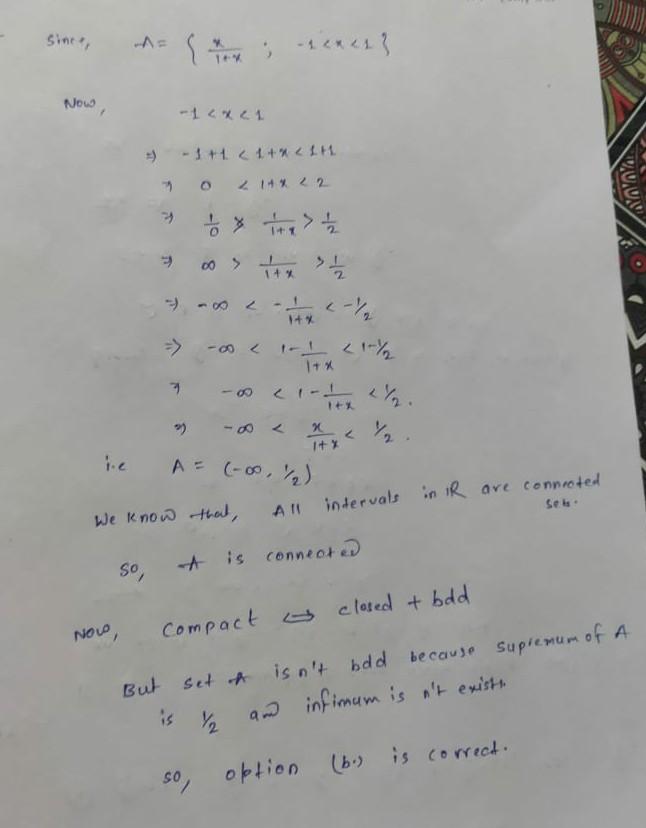 Since, A = { x/1+x ; -1<x<1 }
Now,
-1 < x < 1
⇒ -1+1 < 1+x < 1+1
⇒ 0 < 1+x < 2
⇒ 1/0 > 1/1+x > 1/2
⇒ ∞ > 1/1+x > 1/2
⇒ -∞ < -1/1+x < -1/2
⇒ -∞ < 1-1/1+x < 1-1/2
⇒ -∞ < 1-1/1+x < 1/2.
⇒ -∞ < x/1+x < 1/2.
i.e A = (-∞, 1/2)
We know that, All intervals in IR are connected
sets.
So, A is connected
Now, Compact ⇔ closed + bdd
But set A isn't bdd because supremum of A
is 1/2 and infimum is n't exist.
so, option (b.) is correct.